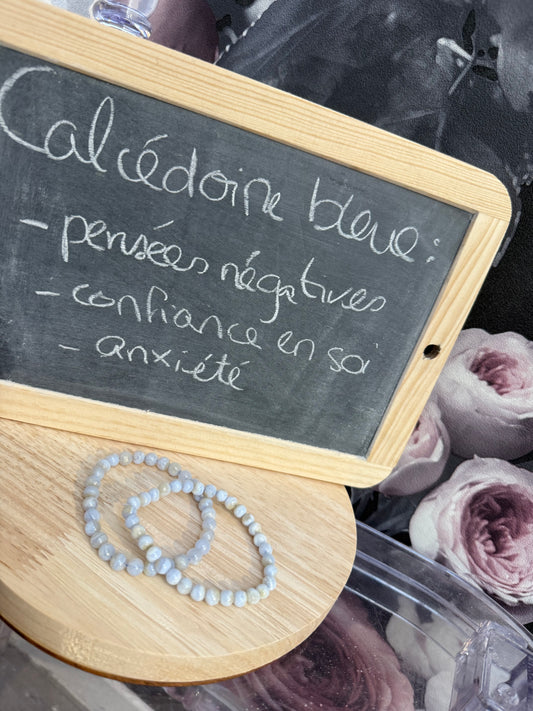 Calcédoine bleue :
- pensées négatives
- confiance en soi
- anxiété